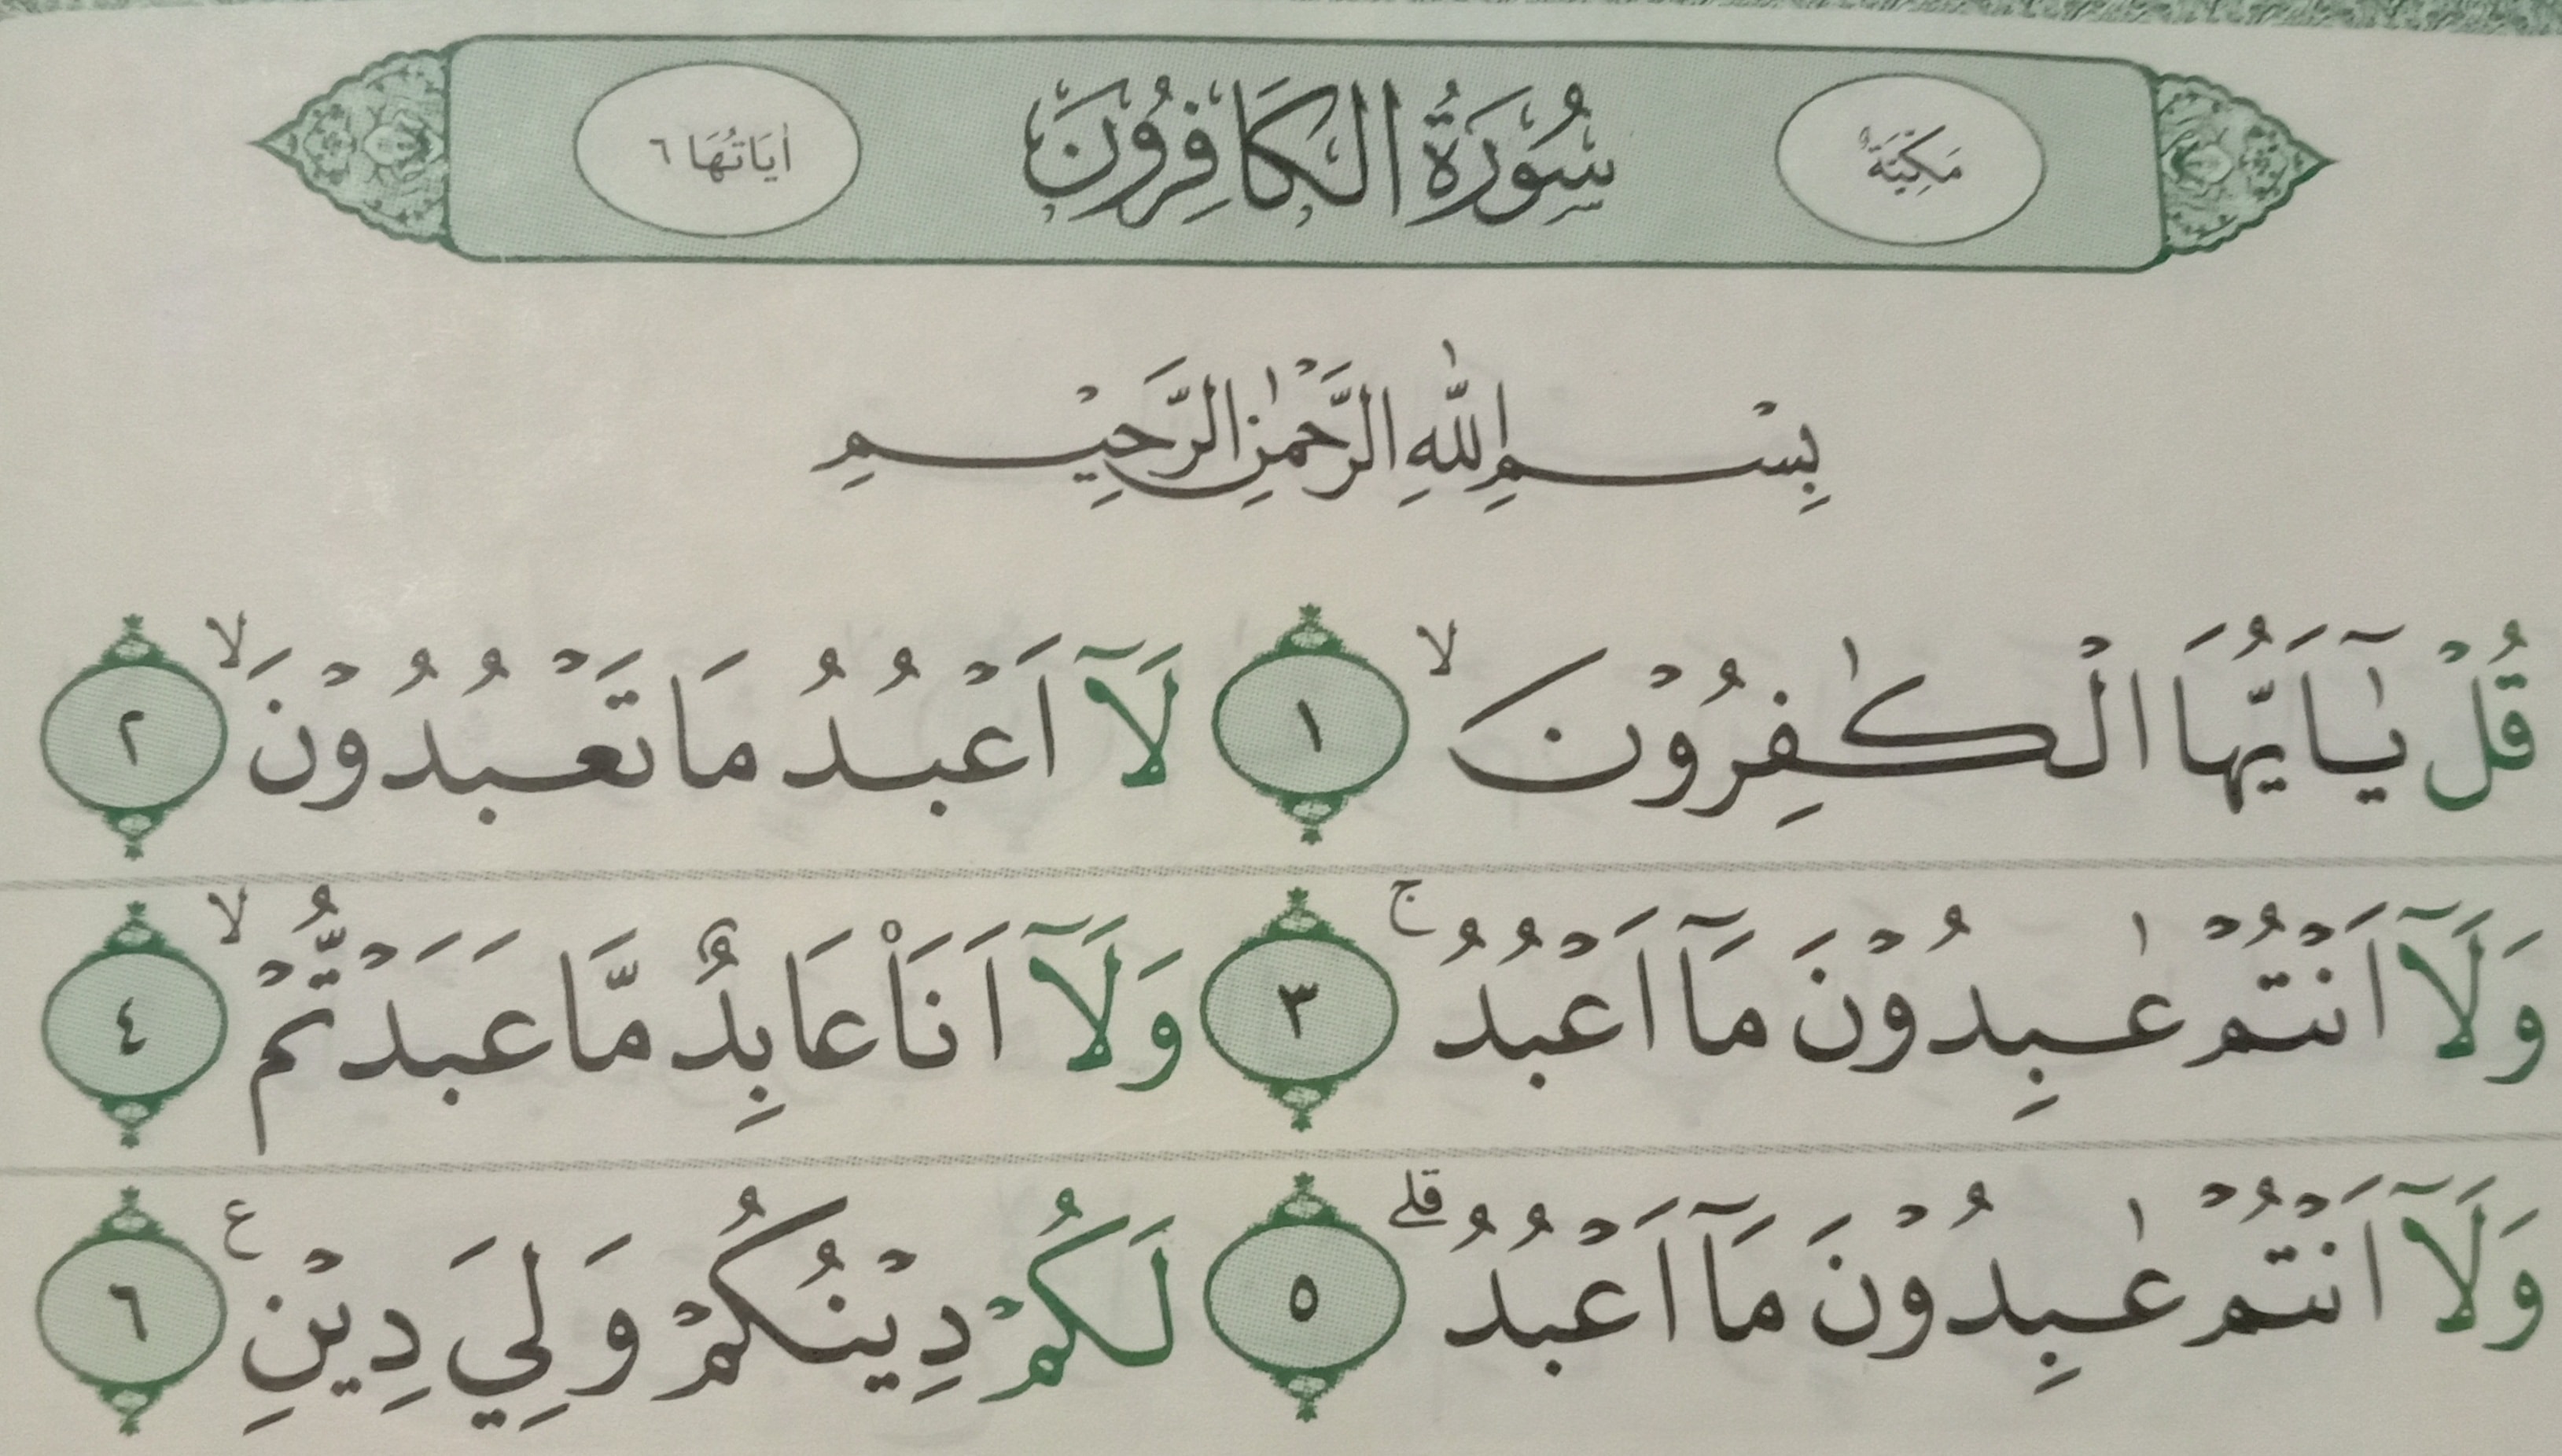 مَكِّيَّةٌ سُوْرَةُ الْكَافِرُوْنَ اٰيَاتُهَا ٦
بِسْمِ اللّٰهِ الرَّحْمٰنِ الرَّحِيْمِ
قُلْ يٰٓاَيُّهَا الْكٰفِرُوْنَۙ ١ لَآ اَعْبُدُ مَا تَعْبُدُوْنَۙ ٢
وَلَآ اَنْتُمْ عٰبِدُوْنَ مَآ اَعْبُدُۚ ٣ وَلَآ اَنَا۠ عَابِدٌ مَّا عَبَدْتُّمْۙ ٤
وَلَآ اَنْتُمْ عٰبِدُوْنَ مَآ اَعْبُدُۗ ٥ لَكُمْ دِيْنُكُمْ وَلِيَ دِيْنِ ࣖ ٦